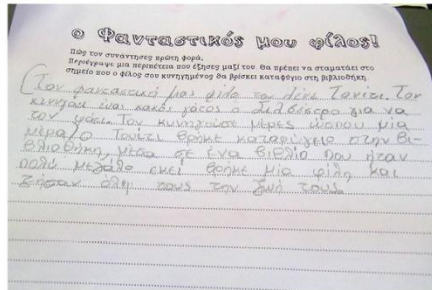 ο Φανταστικός μου φίλος!
Πώς τον συνάντησες πρώτη φορά.
Περιέγραψε μια περιπέτεια που έζησες μαζί του. Θα πρέπει να σταματάει στο
σημείο που ο φίλος σου κυνηγημένος θα βρίσκει καταφύγιο στη βιβλιοθήκη.
(Τον φανταστικό μας φίλο τον λένε Τουίτι. Τον
κυνηγάει ένας κακός γάτος ο Σιλβέστρο για να
τον φάει. Τον κυνηγούσε μέρες ώσπου μια
μέρα/ο Τουίτι βρήκε καταφύγειο στην βι-
βλιοθήκη, μέσα σε ένα βιβλίο που ήταν
πολύ μεγάλο εκεί βρήκε μια φίλη και
ζήσαν όλη τους την ζωή τους.